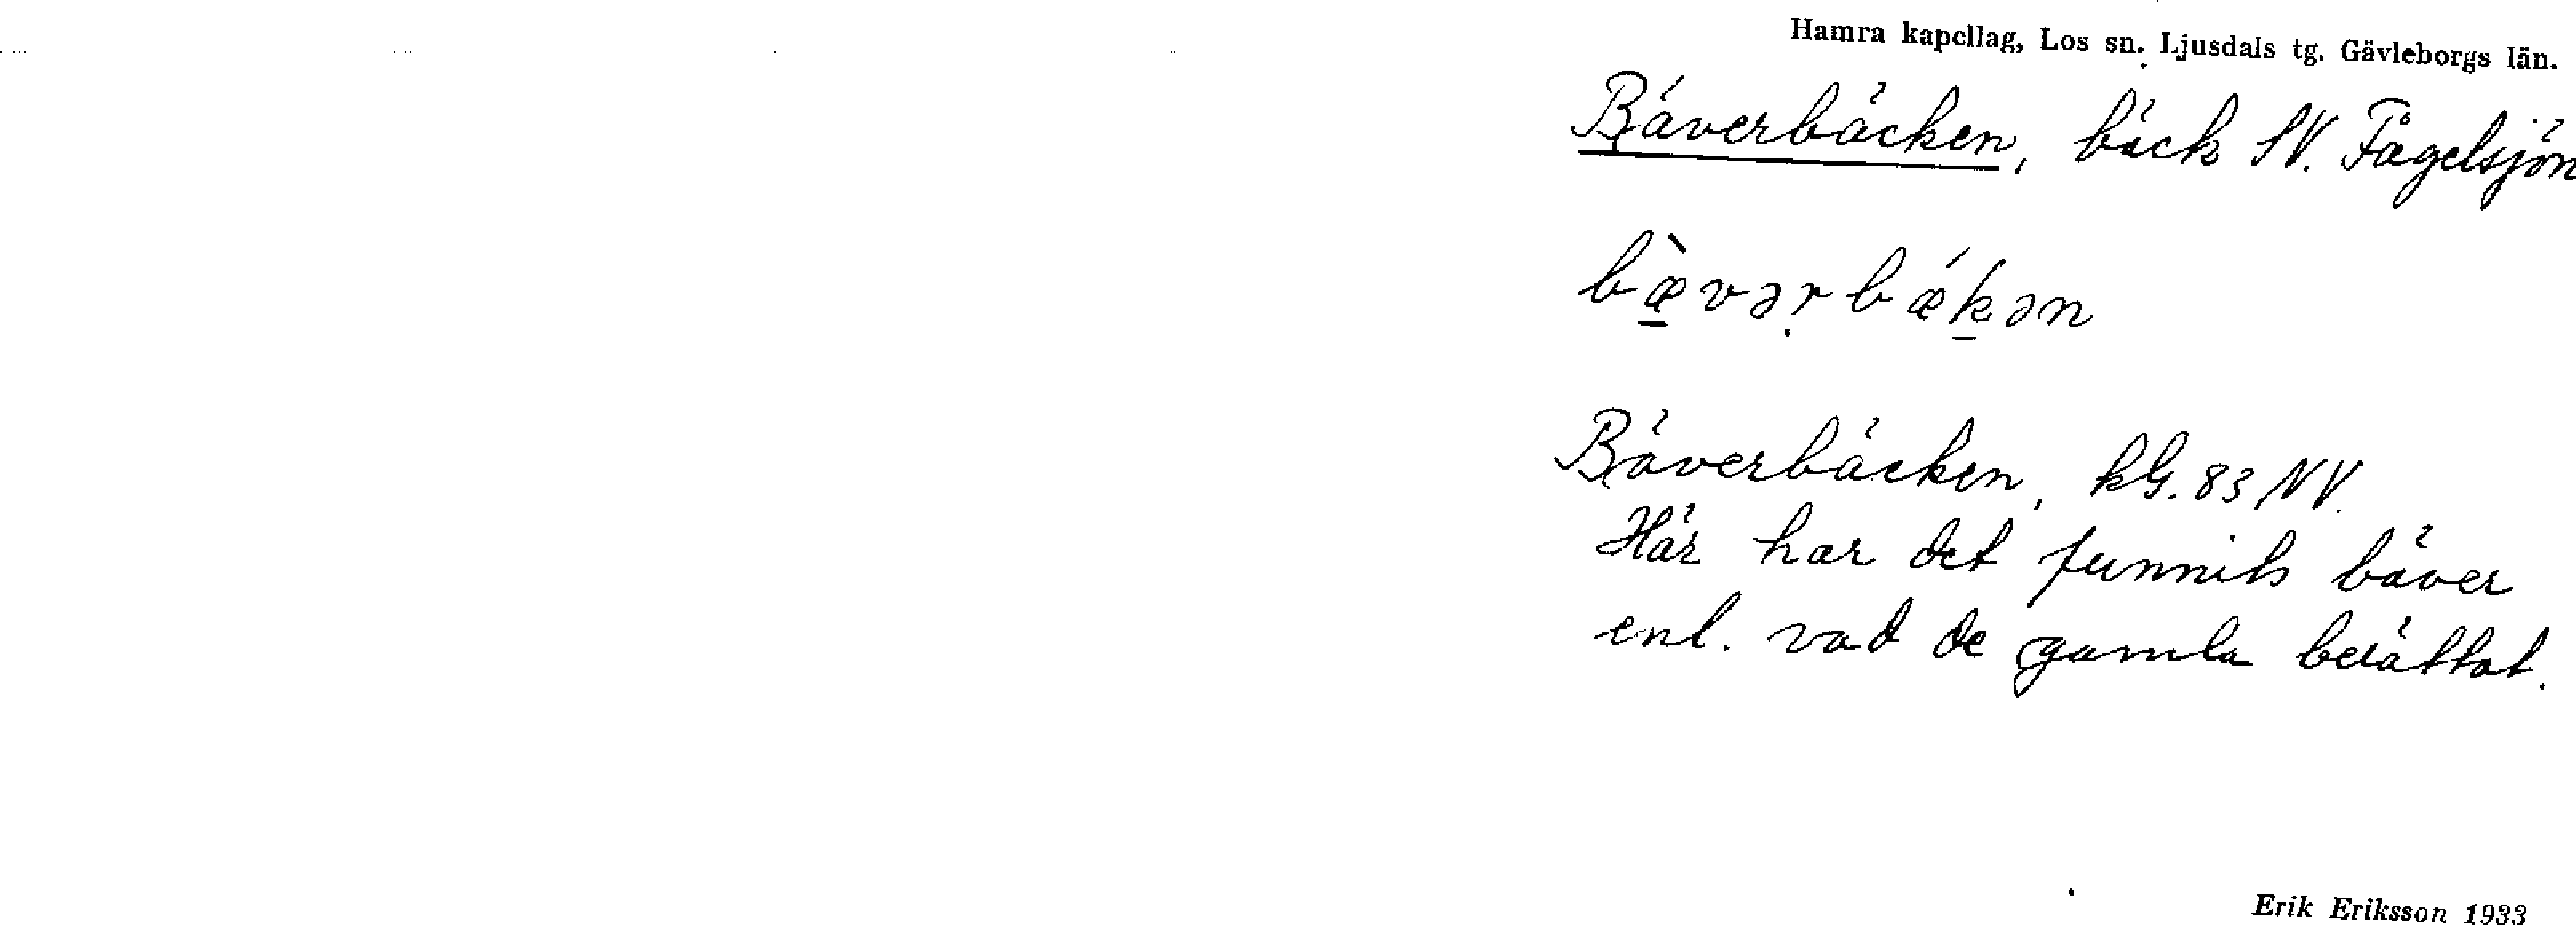 Hamra kapellag, Los sn. Ljusdals tg. Gävleborgs län.
Bäverbäcken, bäck SV. Fågelsjön
bæ̀vərbǽkən
Bäverbäcken, kG. 83 NV.
Här har det funnits bäver
enl. vad de gamla berättat.
Erik Eriksson 1933